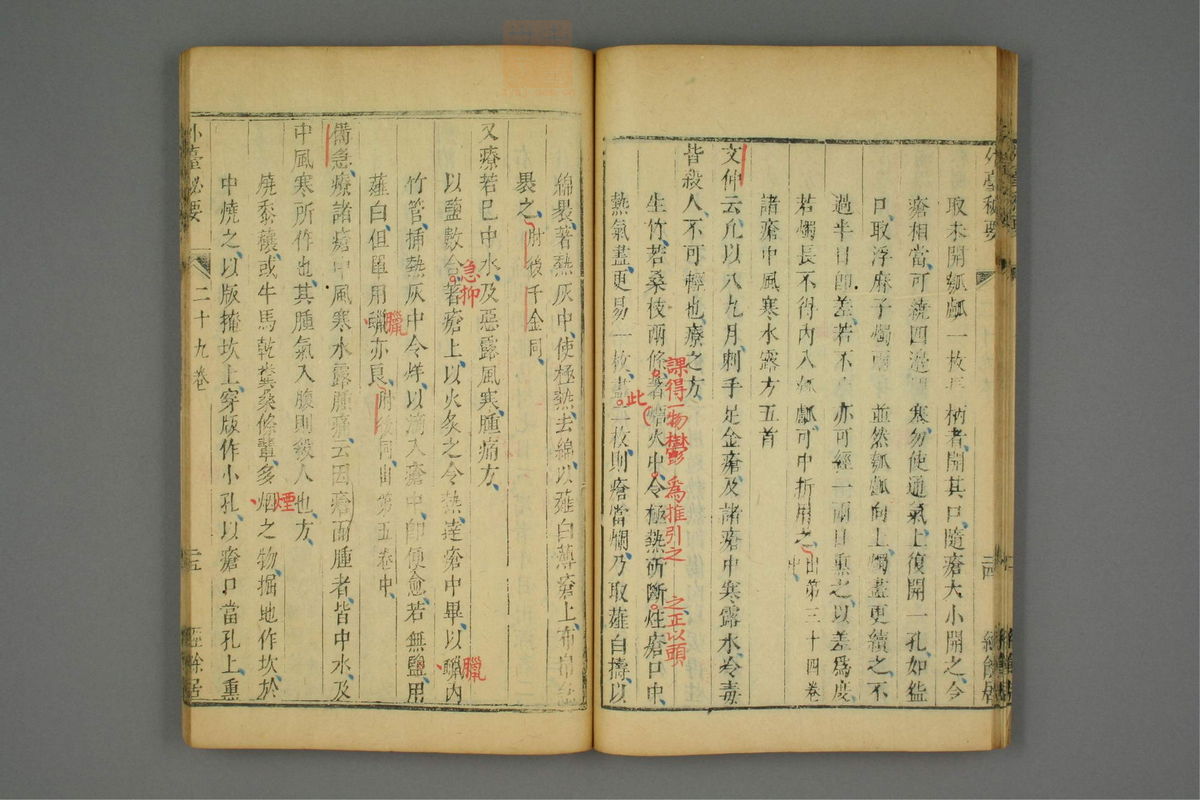 外臺秘要
取未開瓠瓤一枚長柄者開其口隨瘡大小開之令
瘡相當可繞四邊閉塞勿使通氣上復開一孔如缻
口取浮麻子燭兩並然瓠瓤向上燭盡更續之不
過半日即差若不亦可經一兩日熏之以差爲度
若燭長不得內入瓠瓤可中折用之出第三十四卷中
諸瘡中風寒水露方五首
文仲云凡以八九月刺手足金瘡及諸瘡中寒露水冷毒
皆殺人不可輕也療之方
生竹若桑枝兩條著火中令極熱斫斷炷瘡口中
熱氣盡更易一枚盡二枚則瘡當爛乃取薤白擣以
課得一物鬱
爲推引之
之正以頭
此
綿裹著熱灰中使極熱去綿以薤白薄瘡上布帛急
裹之肘後千金同
又療若已中水及惡露風寒腫痛方
以鹽數合著瘡上以火炙之令熱達瘡中畢以蠟內
竹管插熱灰中令烊以滴入瘡中即便愈若無鹽用
薤白但單用蠟亦良肘後同出第五卷中
備急療諸瘡中風寒水露腫痛云因瘡而腫者皆中水及
中風寒所作也其腫氣入腹則殺人也方
燒黍穰或牛馬乾糞桑條輩多烟之物掘地作坎於
中燒之以版掩坎上穿版作小孔以瘡口當孔上熏
急抑
臘
臘
煙
外臺秘要
二十九卷
二五
經餘居